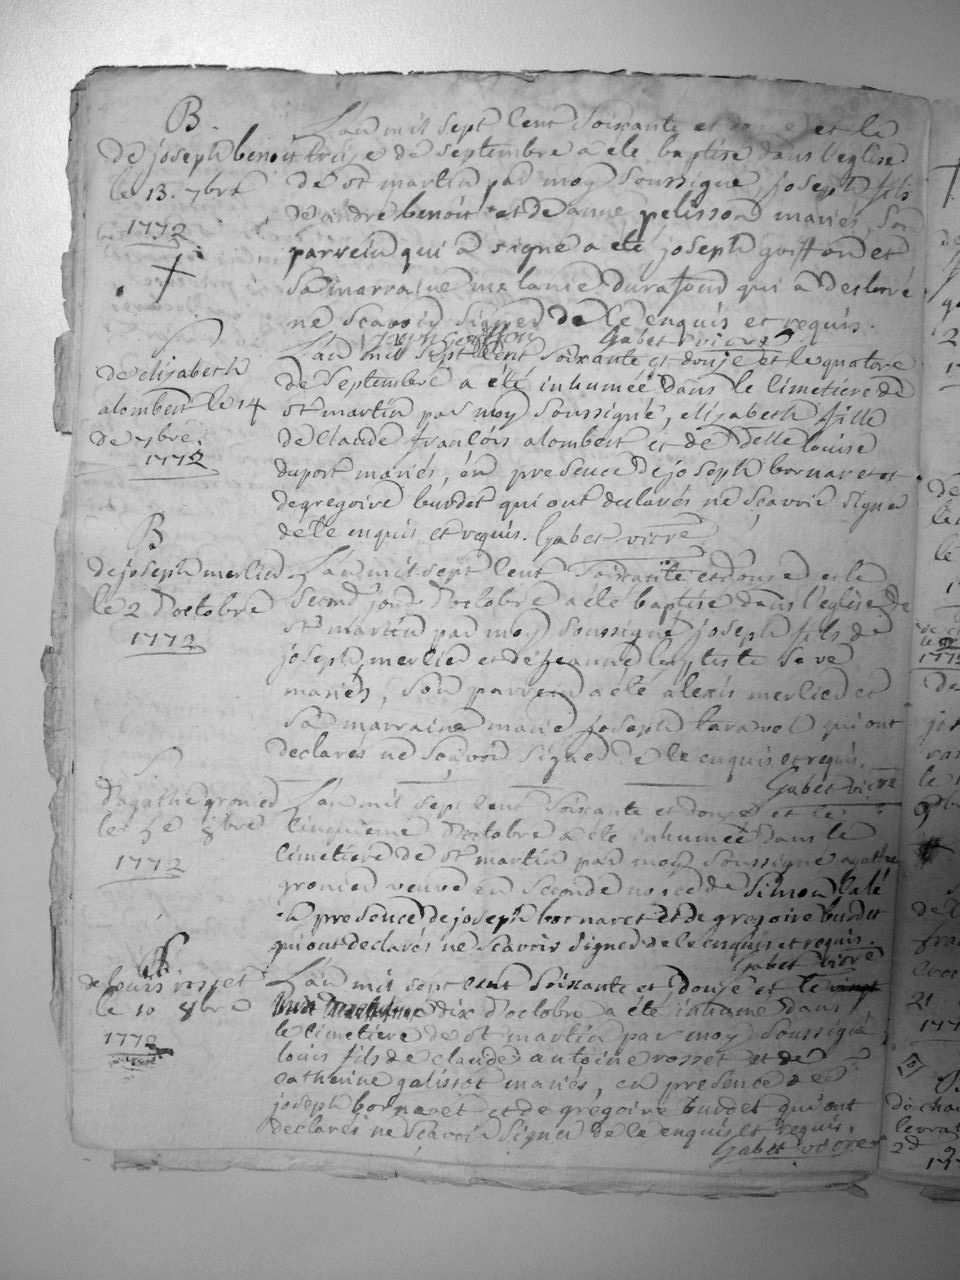 B.
de joseph benoit
le 13. 7bre
1772
L'an mil sept cent soixante et douze et le
treize de septembre a ete baptisé dans l'eglise
de st martin par moy soussigné, joseph fils
de andre benoit et de anne pelisson mariés, son
parrein qui a signé a eté joseph goiffon et
sa marraine melanie durafour qui a declaré
ne scavoir signer de ce enquis et requis.
joseph goiffon Gabet vicre
S
de elizabeth
alombert le 14
de 7bre.
1772
L'an mil sept cent soixante et douze et le quatorze
de septembre a été inhumeé dans le cimetiere de
st martin par moy soussigné, elizabeth fille
de claude françois alombert et de delle louise
duport mariés, en presence de joseph bornaret et
de gregoire burdet qui ont declarés ne scavoir signer
de ce enquis et requis. Gabet vicre
B
de joseph merlier
le 2 d'octobre
1772
L'an mil sept cent soixante et douze et le
second jour d'octobre a ete baptisé dans l'eglise de
st martin par moy soussigné joseph fils de
joseph merlier et de jeanne baptiste
mariés, son parrein a eté alexis merlier et
sa marraine marie joseph taravel qui ont
declarés ne scavoir signer de ce enquis et requis.
Gabet vicre
S
d'agathe gronier
le 5e 8bre
1772
L'an mil sept cent soixante et douze et le
cinquieme d'octobre a ete inhumeé dans le
cimetiere de st martin par moy soussigné agathe
gronier veuve en seconde noce de simon
en presence de joseph bornaret et de gregoire burdet
qui ont declarés ne scavoir signer de ce enquis et requis.
Gabet vicre
S
de louis rosset
le 10 8bre
1772
L'an mil sept cent soixante et douze et le vingt
dix d'octobre a été inhumé dans
le cimetiere de st martin par moy soussigné
louis fils de claude antoine rosset et de
catherine galissot mariés, en presence de
joseph bornaret et de grégoire burdet qui ont
declarés ne scavoir signer de ce enquis et requis.
Gabet vicre